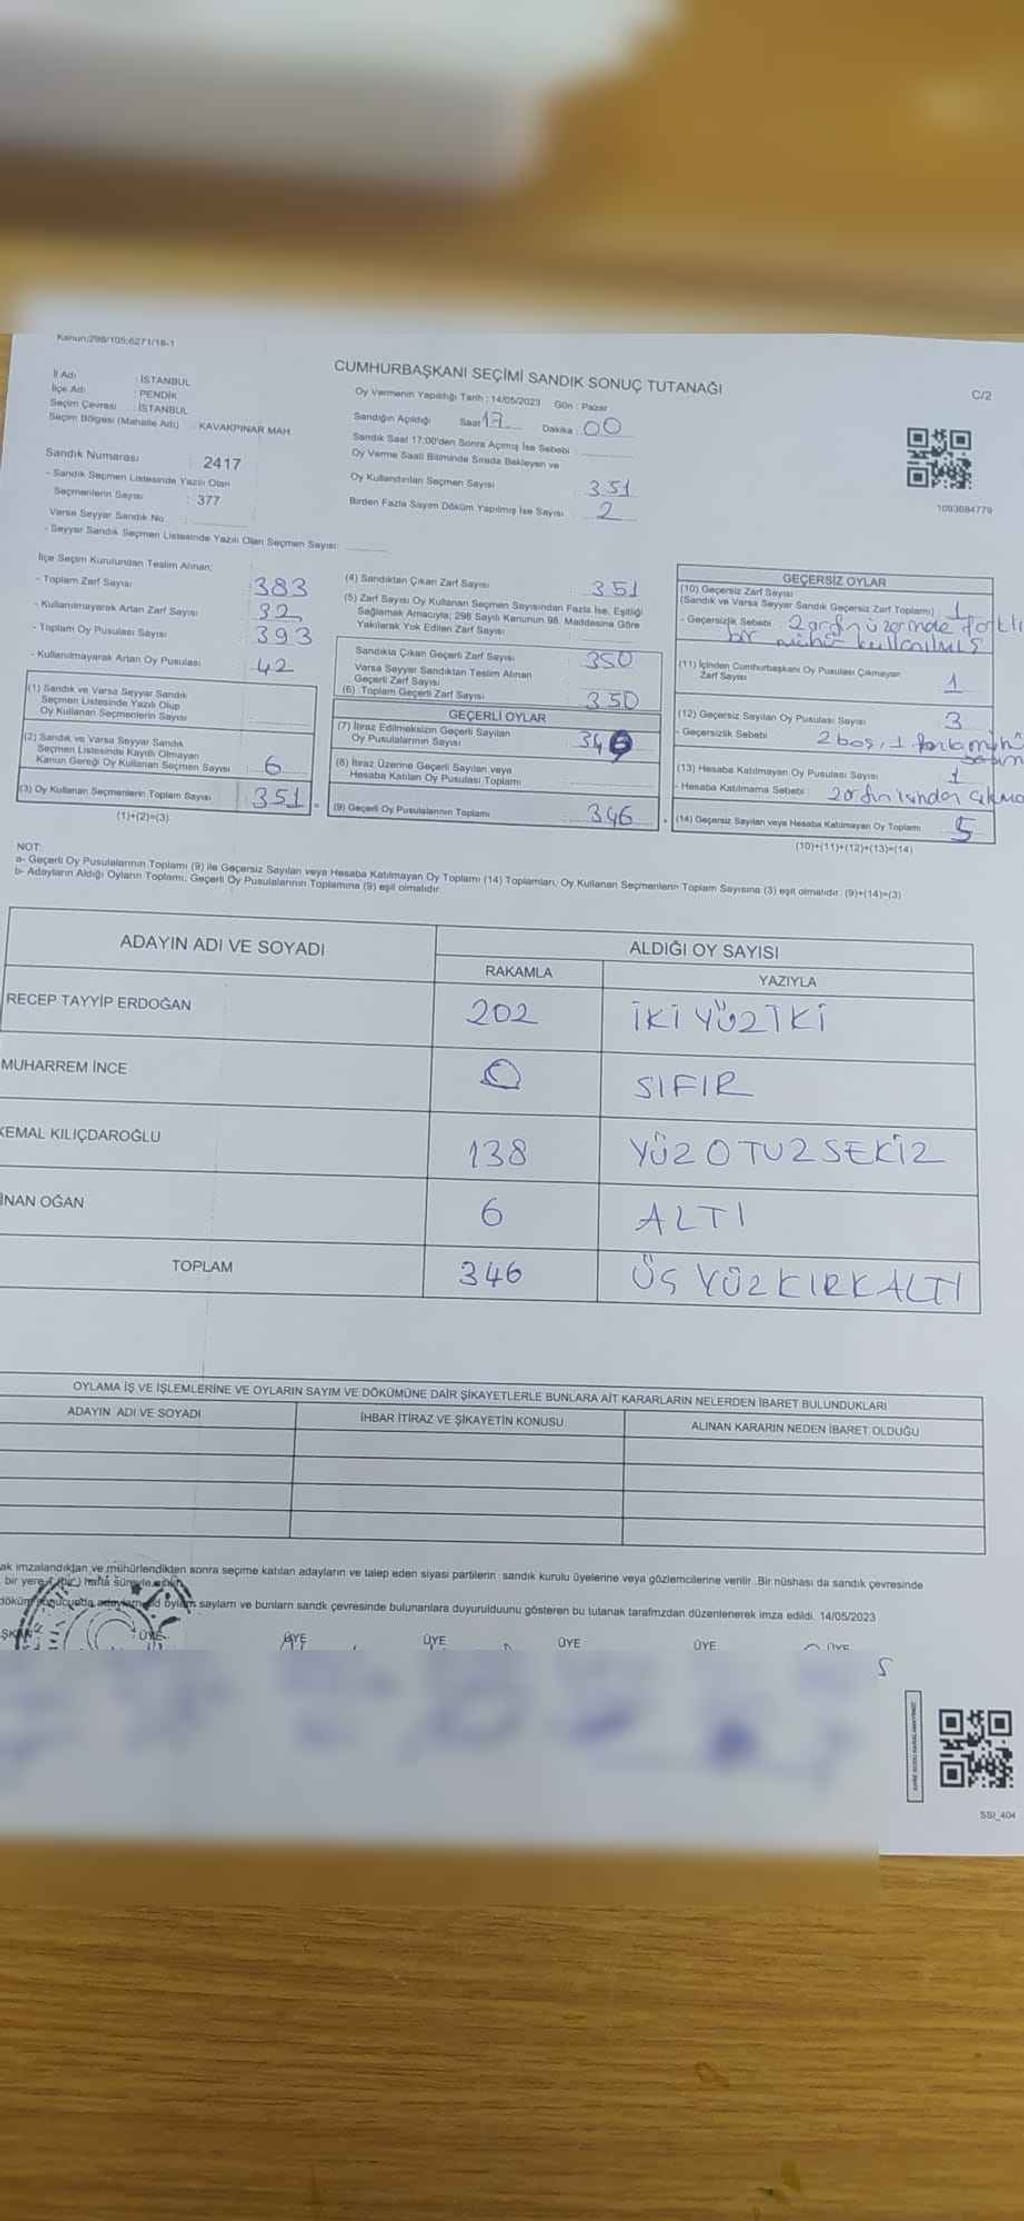 Kanun:298/105;6271/18-1
CUMHURBAŞKANI SEÇİMİ SANDIK SONUÇ TUTANAĞI
C/2
İl Adı : İSTANBUL
İlçe Adı : PENDİK
Seçim Çevresi : İSTANBUL
Seçim Bölgesi (Mahalle Adı) : KAVAKPINAR MAH.
Sandık Numarası : 2417
- Sandık Seçmen Listesinde Yazılı Olan
Seçmenlerin Sayısı : 377
Varsa Seyyar Sandık No
- Seyyar Sandık Seçmen Listesinde Yazılı Olan Seçmen Sayısı:
Oy Vermenin Yapıldığı Tarih : 14/05/2023 Gün : Pazar
Sandığın Açıldığı Saat 17 Dakika : 00
Sandık Saat 17:00'den Sonra Açılmış İse Sebebi
Oy Verme Saati Bitiminde Sırada Bekleyen ve
Oy Kullandırılan Seçmen Sayısı 351
Birden Fazla Sayım Döküm Yapılmış İse Sayısı 2
1093684779
İlçe Seçim Kurulundan Teslim Alınan;
- Toplam Zarf Sayısı 383
- Kullanılmayarak Artan Zarf Sayısı 32
- Toplam Oy Pusulası Sayısı 393
- Kullanılmayarak Artan Oy Pusulası 42
(1) Sandık ve Varsa Seyyar Sandık
Seçmen Listesinde Yazılı Olup
Oy Kullanan Seçmenlerin Sayısı
(2) Sandık ve Varsa Seyyar Sandık
Seçmen Listesinde Kayıtlı Olmayan
Kanun Gereği Oy Kullanan Seçmen Sayısı 6
(3) Oy Kullanan Seçmenlerin Toplam Sayısı 351
(1)+(2)=(3)
(4) Sandıktan Çıkan Zarf Sayısı 351
(5) Zarf Sayısı Oy Kullanan Seçmen Sayısından Fazla İse, Eşitliği
Sağlamak Amacıyla; 298 Sayılı Kanunun 98. Maddesine Göre
Yakılarak Yok Edilen Zarf Sayısı
Sandıkta Çıkan Geçerli Zarf Sayısı 350
Varsa Seyyar Sandıktan Teslim Alınan
Geçerli Zarf Sayısı
(6) Toplam Geçerli Zarf Sayısı 350
GEÇERLİ OYLAR
(7) İtiraz Edilmeksizin Geçerli Sayılan
Oy Pusulalarının Sayısı 346
(8) İtiraz Üzerine Geçerli Sayılan veya
Hesaba Katılan Oy Pusulası Toplamı
(9) Geçerli Oy Pusulalarının Toplamı 346
GEÇERSİZ OYLAR
(10) Geçersiz Zarf Sayısı
(Sandık ve Varsa Seyyar Sandık Geçersiz Zarf Toplamı) 1
- Geçersizlik Sebebi zarfın üzerinde farklı
bir mühür kullanılmış
(11) İçinden Cumhurbaşkanı Oy Pusulası Çıkmayan
Zarf Sayısı 1
(12) Geçersiz Sayılan Oy Pusulası Sayısı 3
- Geçersizlik Sebebi 2 boş, 1
(13) Hesaba Katılmayan Oy Pusulası Sayısı 1
- Hesaba Katılmama Sebebi zarfın içinden
(14) Geçersiz Sayılan veya Hesaba Katılmayan Oy Toplamı 5
(10)+(11)+(12)+(13)=(14)
NOT:
a- Geçerli Oy Pusulalarının Toplamı (9) ile Geçersiz Sayılan veya Hesaba Katılmayan Oy Toplamı (14) Toplamları, Oy Kullanan Seçmenlerin Toplam Sayısına (3) eşit olmalıdır. (9)+(14)=(3)
b- Adayların Aldığı Oyların Toplamı, Geçerli Oy Pusulalarının Toplamına (9) eşit olmalıdır.
ADAYIN ADI VE SOYADI
ALDIĞI OY SAYISI
RAKAMLA YAZIYLA
RECEP TAYYİP ERDOĞAN 202 İKİ YÜZ İKİ
MUHARREM İNCE 0 SIFIR
KEMAL KILIÇDAROĞLU 138 YÜZ OTUZ SEKİZ
İNAN OĞAN 6 ALTI
TOPLAM 346 ÜÇ YÜZ KIRK ALTI
OYLAMA İŞ VE İŞLEMLERİNE VE OYLARIN SAYIM VE DÖKÜMÜNE DAİR ŞİKAYETLERLE BUNLARA AİT KARARLARIN NELERDEN İBARET BULUNDUKLARI
ADAYIN ADI VE SOYADI İHBAR İTİRAZ VE ŞİKAYETİN KONUSU ALINAN KARARIN NEDEN İBARET OLDUĞU
ak imzalandıktan ve mühürlendikten sonra seçime katılan adayların ve talep eden siyasi partilerin sandık kurulu üyelerine veya gözlemcilerine verilir. Bir nüshası da sandık çevresinde
bir yere (bir) hafta süreyle
döküm sonucunda oyların sayılarını ve bunların sandık çevresinde bulunanlara duyurulduğunu gösteren bu tutanak tarafımızdan düzenlenerek imza edildi. 14/05/2023
ÜYE ÜYE ÜYE ÜYE ÜYE ÜYE
SSI_404